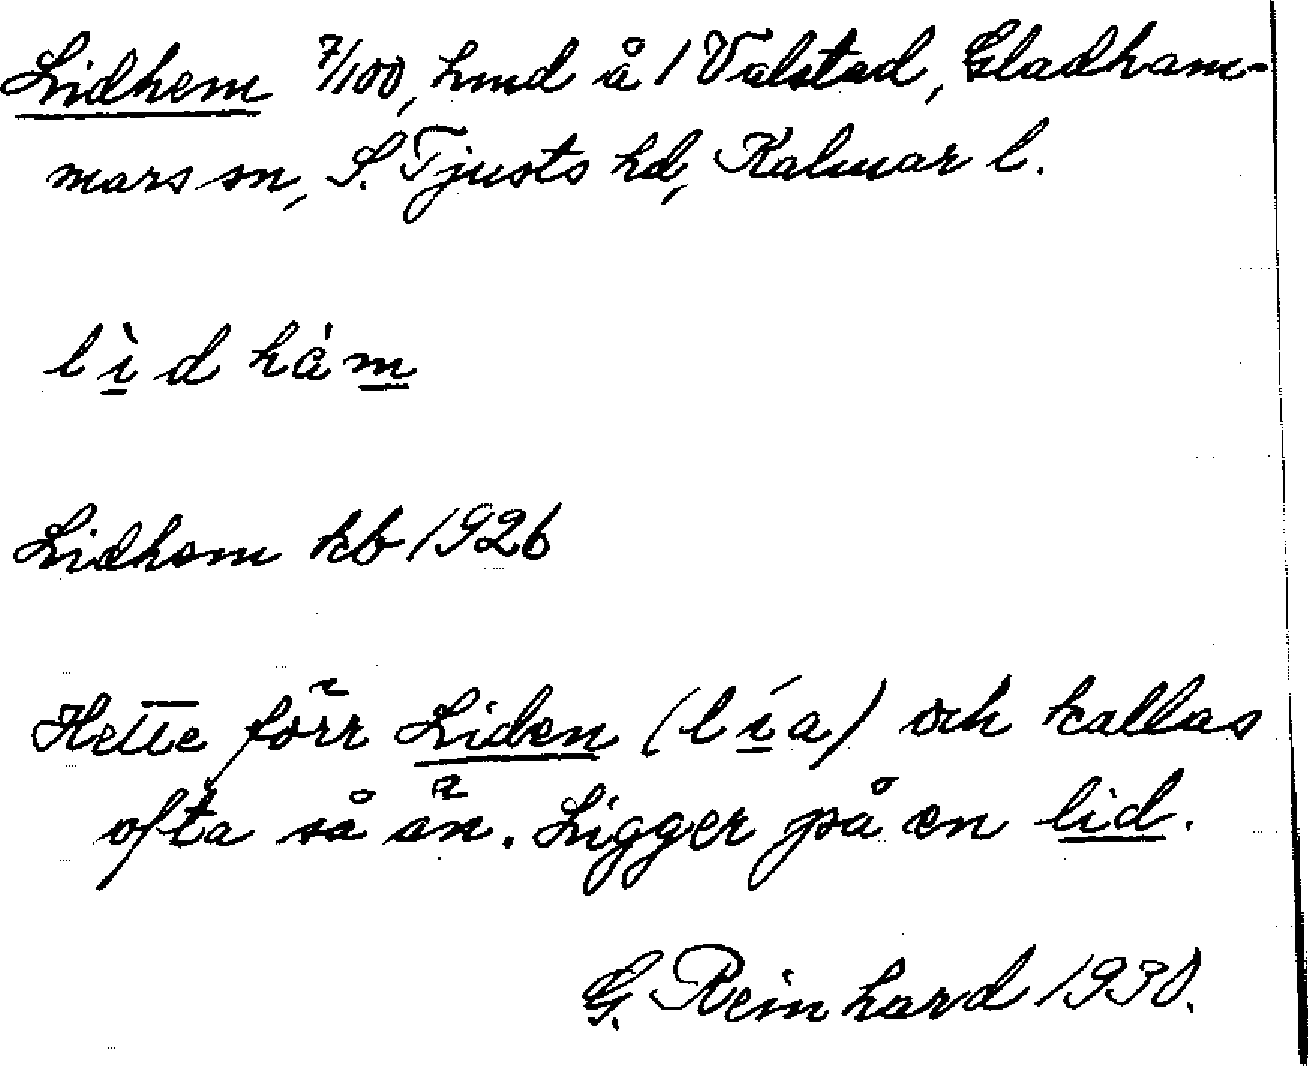 Lidhem 7/100, hmd å 1 Valstad, Gladham-
mars sn, S. Tjusts hd, Kalmar l.
lìd hàm
Lidhem kb 1926
Hette förr Liden (lía) och kallas
ofta så än. Ligger på en lid.
G. Reinhard 1930.